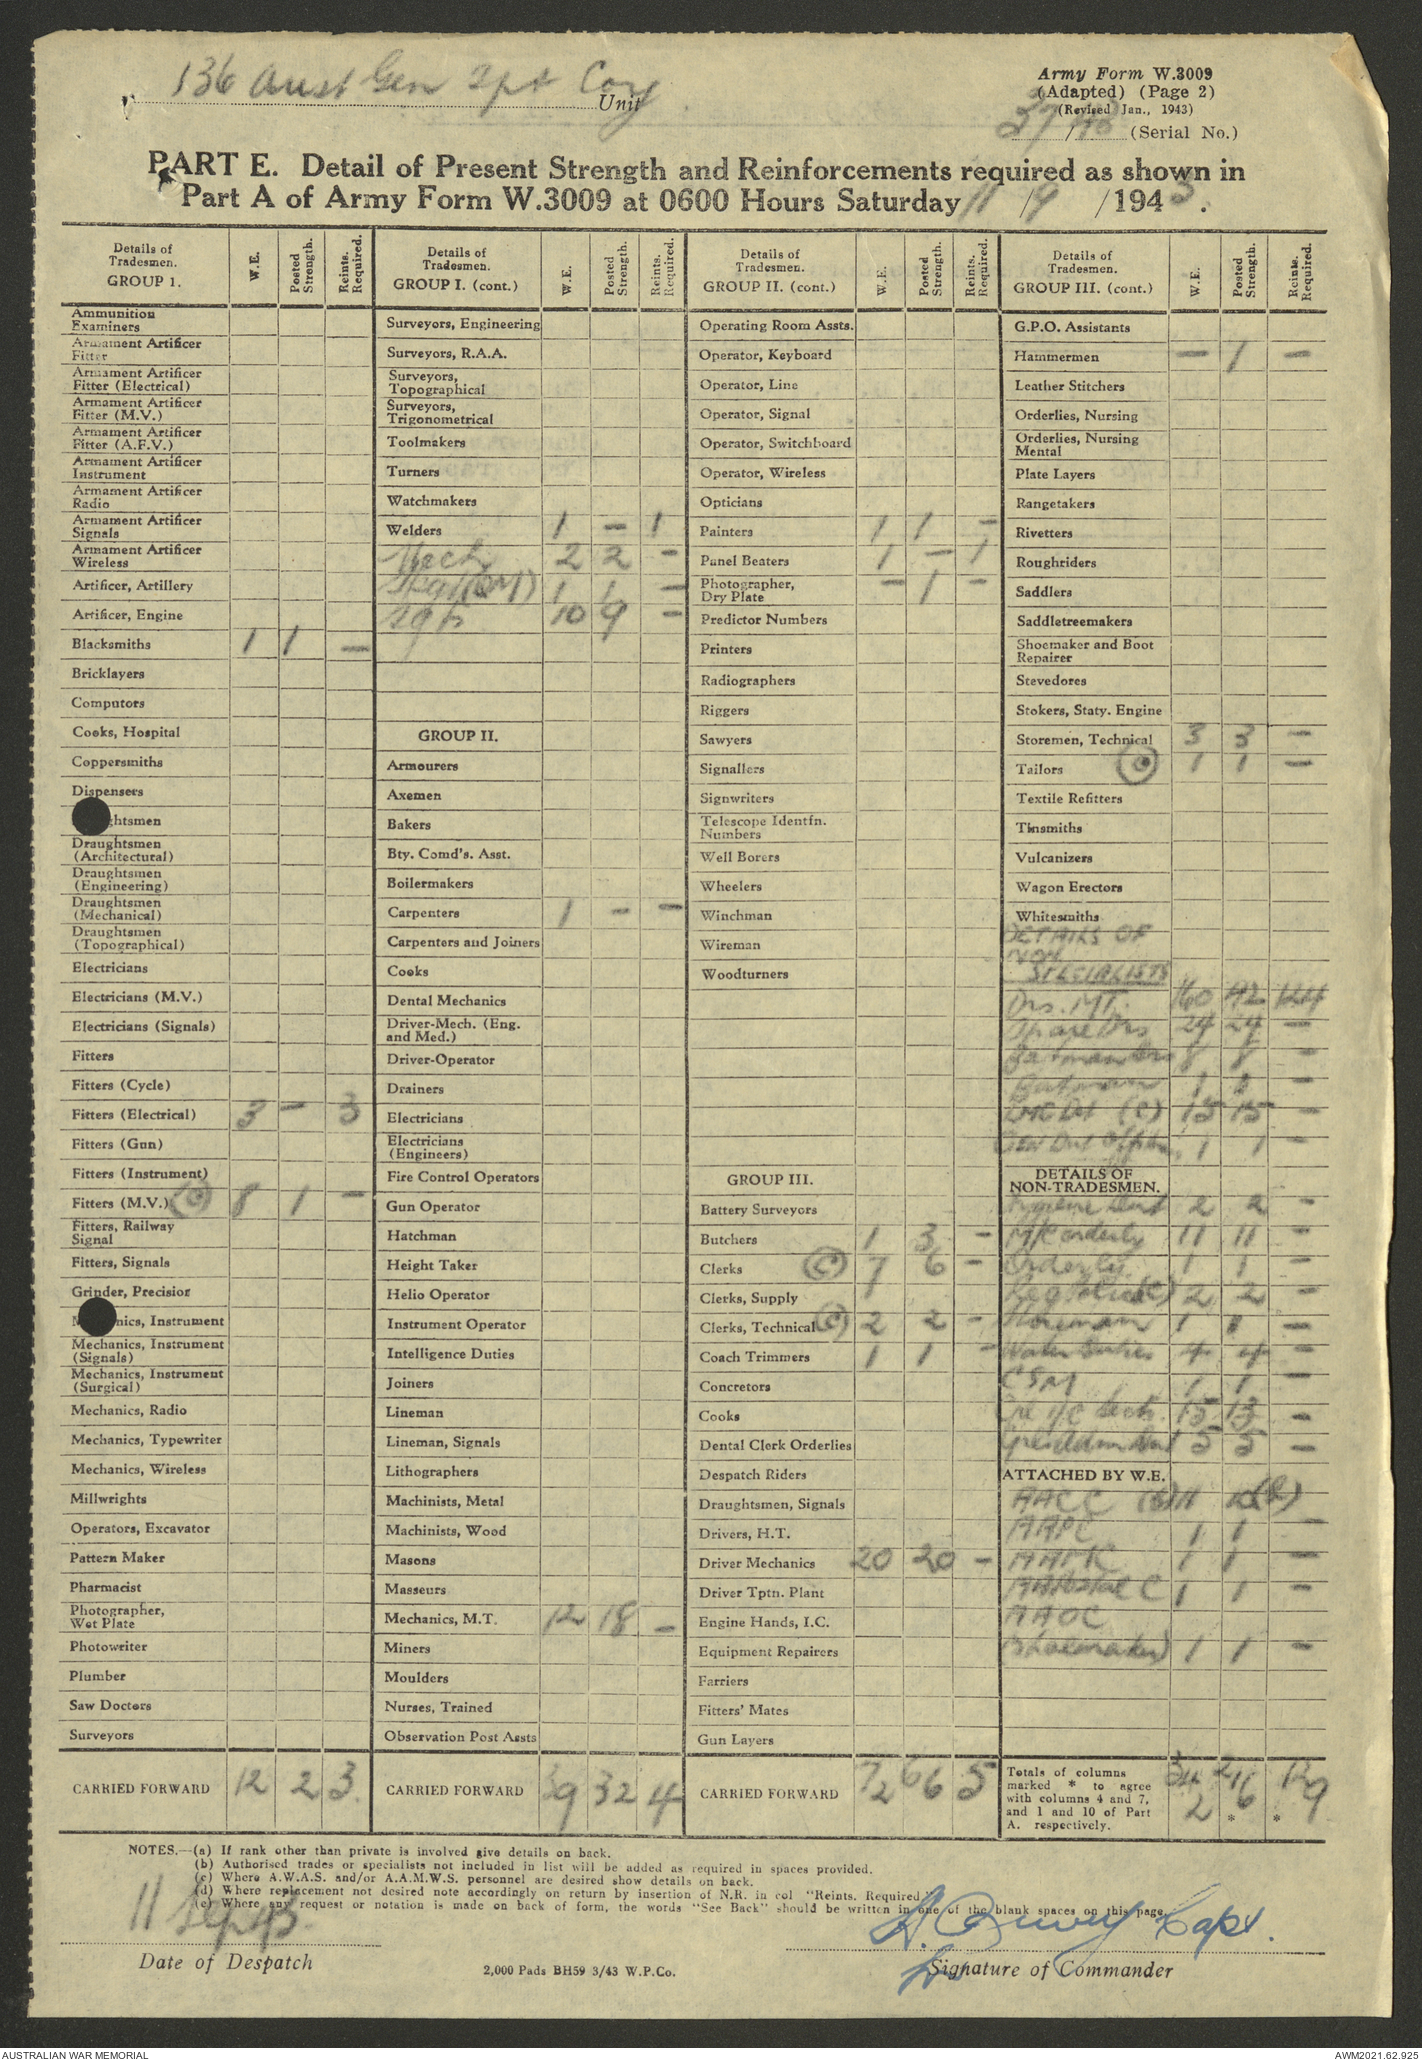 136 Aust Gen Tpt Coy Unit
Army Form W.3009
(Adapted) (Page 2)
(Revised Jan., 1943)
37/43 (Serial No.)
PART E. Detail of Present Strength and Reinforcements required as shown in
Part A of Army Form W.3009 at 0600 Hours Saturday 11/9/1943.
Details of Tradesmen. GROUP 1. W.E. Posted Strength. Reints. Required.
Ammunition Examiners
Armament Artificer Fitter
Armament Artificer Fitter (Electrical)
Armament Artificer Fitter (M.V.)
Armament Artificer Fitter (A.F.V.)
Armament Artificer Instrument
Armament Artificer Radio
Armament Artificer Signals
Armament Artificer Wireless
Artificer, Artillery
Artificer, Engine
Blacksmiths 1 1 —
Bricklayers
Computors
Cooks, Hospital
Coppersmiths
Dispensers
htsmen
Draughtsmen (Architectural)
Draughtsmen (Engineering)
Draughtsmen (Mechanical)
Draughtsmen (Topographical)
Electricians
Electricians (M.V.)
Electricians (Signals)
Fitters
Fitters (Cycle)
Fitters (Electrical) 3 — 3
Fitters (Gun)
Fitters (Instrument)
Fitters (M.V.) (C) 8 1 —
Fitters, Railway Signal
Fitters, Signals
Grinder, Precision
M nics, Instrument
Mechanics, Instrument (Signals)
Mechanics, Instrument (Surgical)
Mechanics, Radio
Mechanics, Typewriter
Mechanics, Wireless
Millwrights
Operators, Excavator
Pattern Maker
Pharmacist
Photographer, Wet Plate
Photowriter
Plumber
Saw Doctors
Surveyors
CARRIED FORWARD 12 2 3
Details of Tradesmen. GROUP I. (cont.) W.E. Posted Strength. Reints. Required.
Surveyors, Engineering
Surveyors, R.A.A.
Surveyors, Topographical
Surveyors, Trigonometrical
Toolmakers
Turners
Watchmakers
Welders 1 — 1
Mech 2 2 —
1 1 —
10 9 —
GROUP II.
Armourers
Axemen
Bakers
Bty. Comd's. Asst.
Boilermakers
Carpenters 1 — —
Carpenters and Joiners
Cooks
Dental Mechanics
Driver-Mech. (Eng. and Med.)
Driver-Operator
Drainers
Electricians
Electricians (Engineers)
Fire Control Operators
Gun Operator
Hatchman
Height Taker
Helio Operator
Instrument Operator
Intelligence Duties
Joiners
Lineman
Lineman, Signals
Lithographers
Machinists, Metal
Machinists, Wood
Masons
Masseurs
Mechanics, M.T. 12 18 —
Miners
Moulders
Nurses, Trained
Observation Post Assts
CARRIED FORWARD 39 32 4
Details of Tradesmen. GROUP II. (cont.) W.E. Posted Strength. Reints. Required.
Operating Room Assts.
Operator, Keyboard
Operator, Line
Operator, Signal
Operator, Switchboard
Operator, Wireless
Opticians
Painters 1 1 —
Panel Beaters 1 — 1
Photographer, Dry Plate — 1 —
Predictor Numbers
Printers
Radiographers
Riggers
Sawyers
Signallers
Signwriters
Telescope Identfn. Numbers
Well Borers
Wheelers
Winchman
Wireman
Woodturners
GROUP III.
Battery Surveyors
Butchers 1 3 —
Clerks (C) 7 6 —
Clerks, Supply
Clerks, Technical (C) 2 2 —
Coach Trimmers 1 1 —
Concretors
Cooks
Dental Clerk Orderlies
Despatch Riders
Draughtsmen, Signals
Drivers, H.T.
Driver Mechanics 20 20 —
Driver Tptn. Plant
Engine Hands, I.C.
Equipment Repairers
Farriers
Fitters' Mates
Gun Layers
CARRIED FORWARD 72 66 5
Details of Tradesmen. GROUP III. (cont.) W.E. Posted Strength. Reints. Required.
G.P.O. Assistants
Hammermen — 1 —
Leather Stitchers
Orderlies, Nursing
Orderlies, Nursing Mental
Plate Layers
Rangetakers
Rivetters
Roughriders
Saddlers
Saddletreemakers
Shoemaker and Boot Repairer
Stevedores
Stokers, Staty. Engine
Storemen, Technical 3 3 —
Tailors (C) 1 1 —
Textile Refitters
Tinsmiths
Vulcanizers
Wagon Erectors
Whitesmiths
DETAILS OF
NON
SPECIALISTS
Drs. MT. 160 42 124
Spare Drs 24 24 —
Batman Drs 8 8 —
Batman 1 1 —
(C) 15 15 —
Gen Dut 1 1 —
DETAILS OF NON-TRADESMEN.
Hygiene Dut 2 2 —
M/C orderly 11 11 —
Orderly 1 1 —
Reg Police (C) 2 2 —
Storeman 1 1 —
Water Duties 4 4 —
CSM 1 1 —
i/c Sects. 15 13 —
5 5 —
ATTACHED BY W.E.
AACC (b) 11 10 (b)
AAPC 1 1 —
AAMC 1 1 —
AAPostal C 1 1 —
AAOC
(Shoemaker) 1 1 —
Totals of columns marked * to agree with columns 4 and 7, and 1 and 10 of Part A. respectively. 342 216 * 129 *
NOTES.—(a) If rank other than private is involved give details on back.
(b) Authorised trades or specialists not included in list will be added as required in spaces provided.
(c) Where A.W.A.S. and/or A.A.M.W.S. personnel are desired show details on back.
(d) Where replacement not desired note accordingly on return by insertion of N.R. in col "Reints. Required."
(e) Where any request or notation is made on back of form, the words "See Back" should be written in one of the blank spaces on this page.
11 Sep 43
Capt.
Date of Despatch
2,000 Pads BH59 3/43 W.P.Co.
Signature of Commander
AUSTRALIAN WAR MEMORIAL
AWM2021.62.925